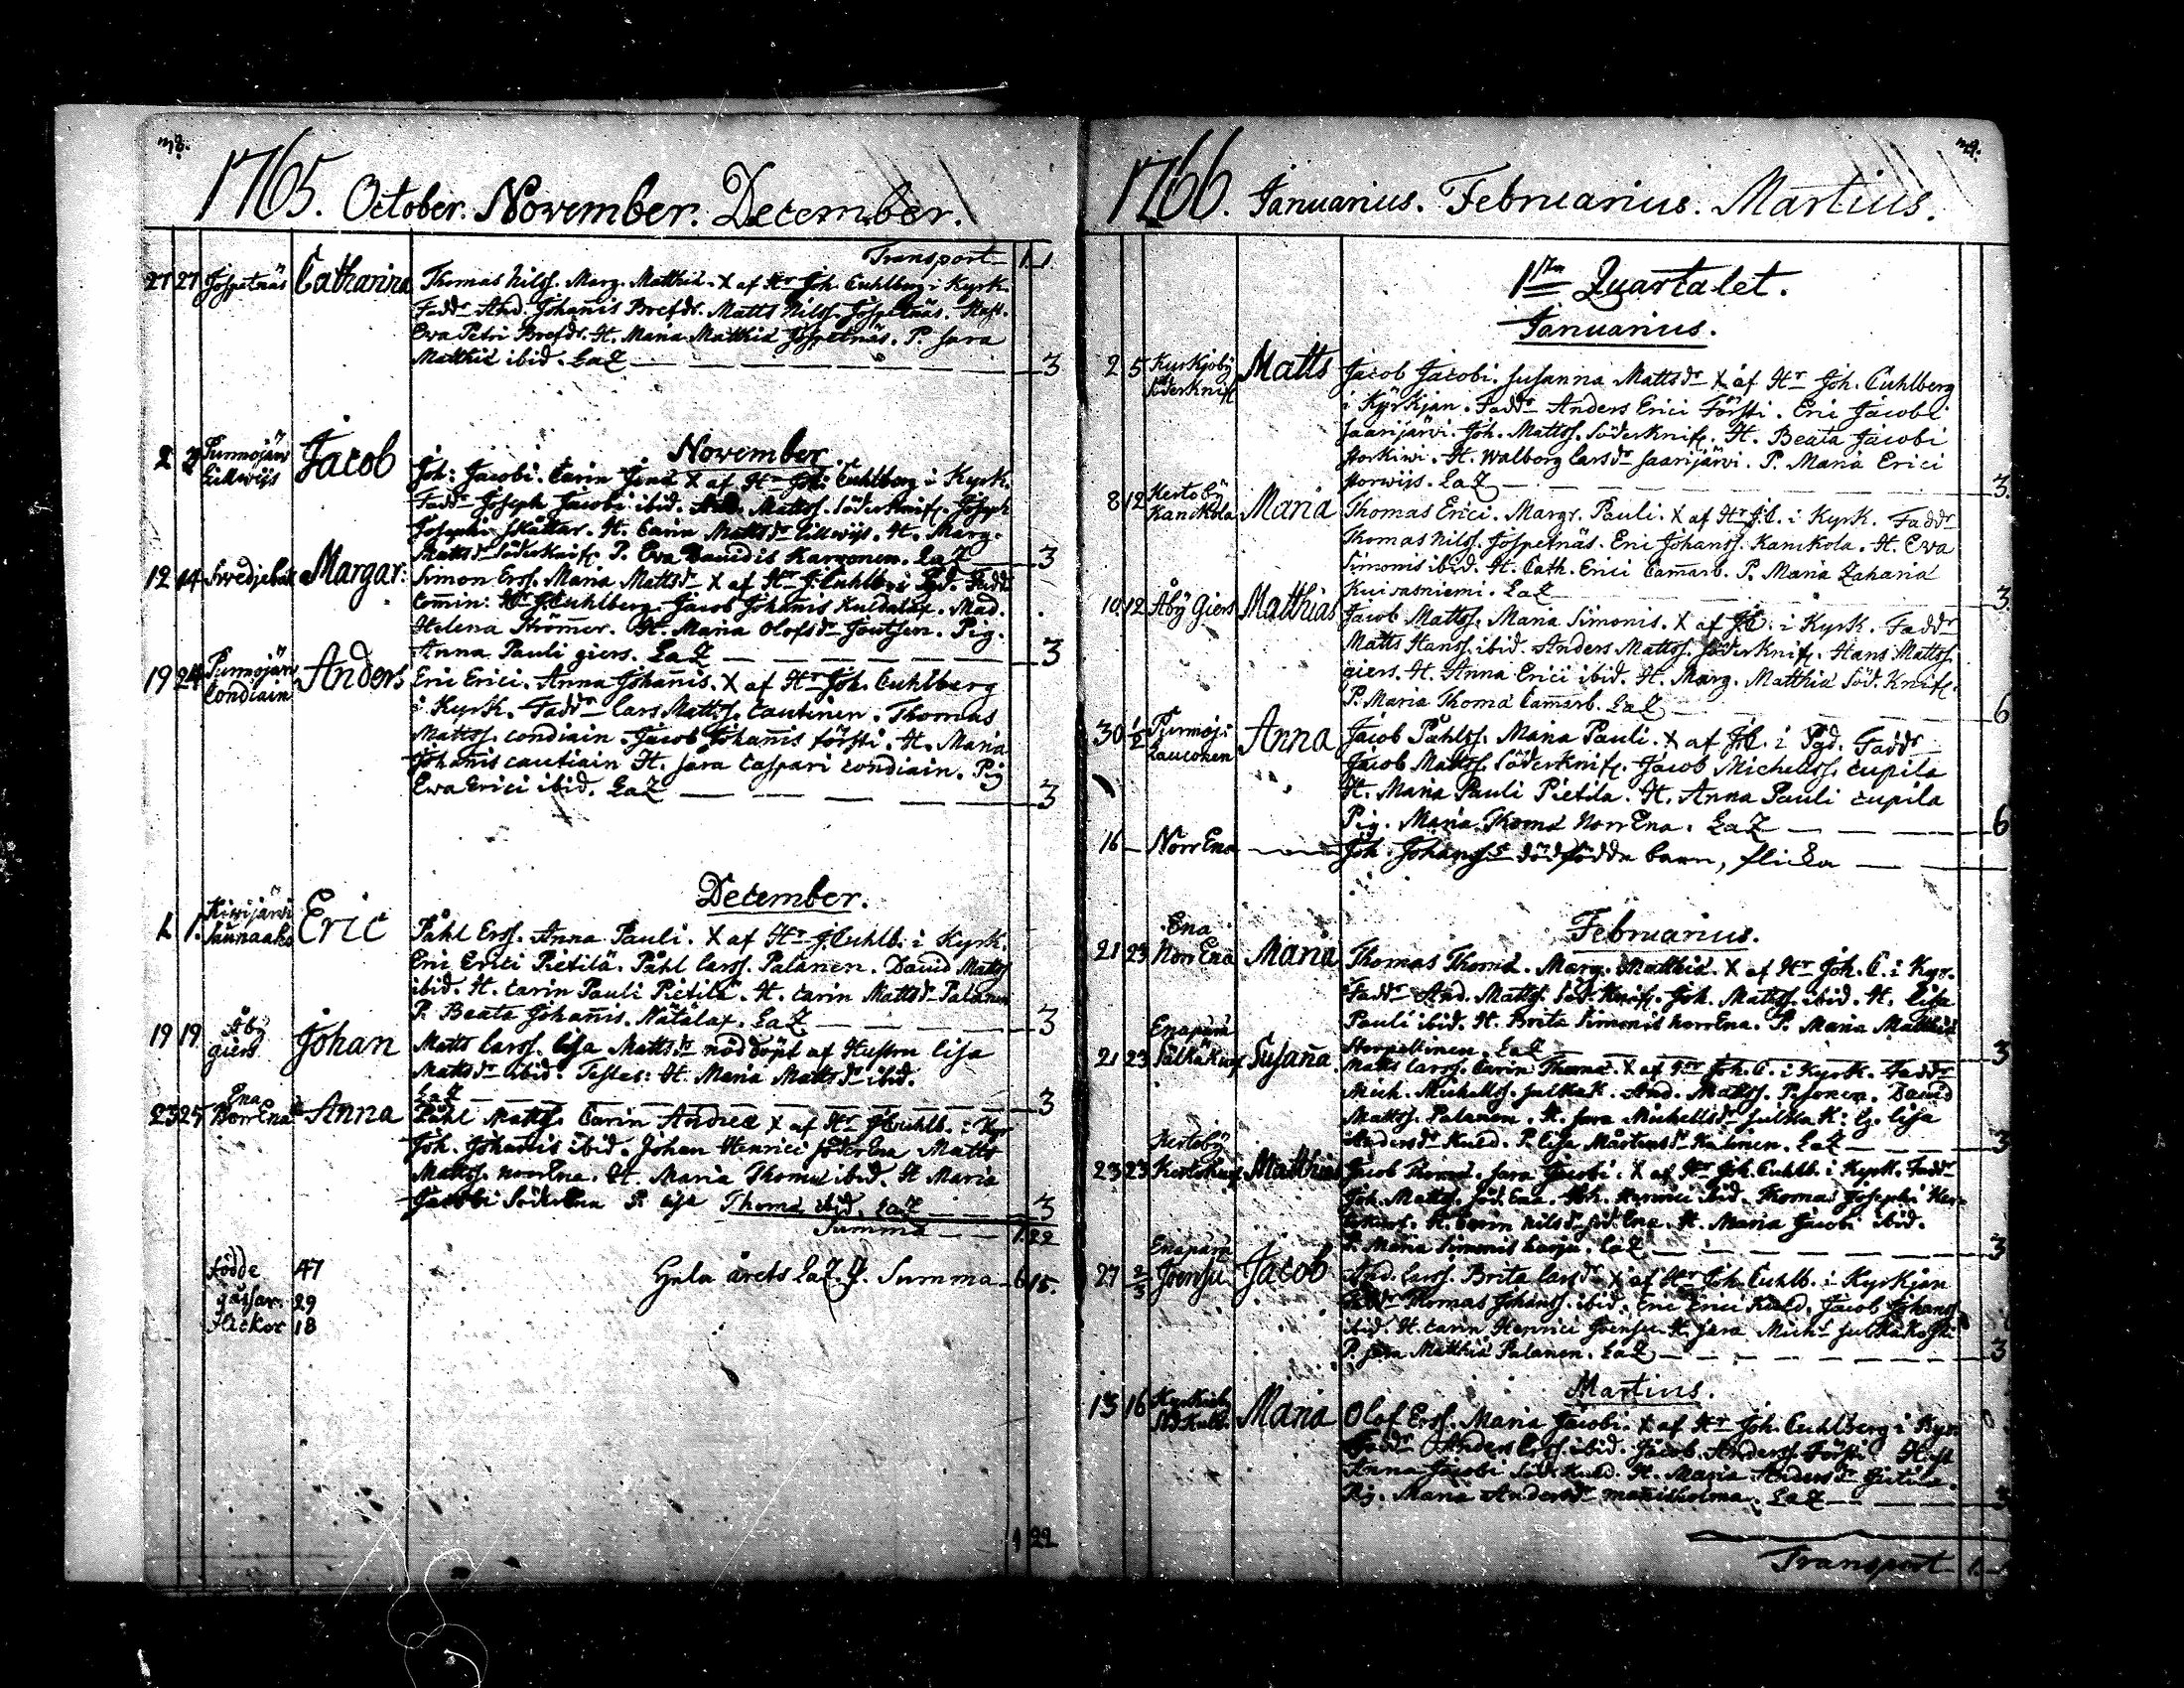 1765. October. November. December.
Transport 1 1
27 27 Jospetnäs Catharina Thomas Nilss. Marg. Matthiæ. X af Hr Joh. Cuhlberg i Kyrk.
Faddr And. Johannis Brefdr. Matts Nilss. Jospetnäs. Hust.
Ewa Petri Brefdr. H. Maria Matthiæ Jospetnäs. P. Sara
Matthiæ ibid. LaZ 3
November
2 3 Purmojärv Lillwijs Jacob Joh: Jacobi. Carin X af Hr Joh: Cuhlberg i Kyrk.
Faddr Joseph Jacobi ibid. Mattss. Söderknif. Joseph
Josephi Skåttar. H. Carin Mattsdr Lillwijs. H. Marg.
Mattsdr Söderknif. P. Ewa Davidis Karvonen. LaZ 3
12 14 Swedjebak Margar: Simon Erss. Maria Mattsdr X af Hr J. Cuhlb. i Faddr
Com̄in: Hr J. Cuhlberg. Jacob Johannis Kuldalax. Mad.
Helena Ström̄er. H. Maria Olofsdr Joutsen. Pig.
Anna Pauli giers. LaZ 3
19 24 Purmojärv Condiain Anders Eric Erici. Anna Johan̄is. X af Hr Joh. Cuhlberg
i Kyrk. Faddr Lars Mattss. Cautinen. Thomas
Mattss. Condiain. Jacob Johan̄is Försti. H. Maria
Johan̄is Cautiain H. Sara Caspari Condiain. Pig
Ewa Erici ibid. LaZ 3
December.
1. 1. Kiwijärvi Saunaaho Eric Påhl Erss. Anna Pauli. X af Hr J. Cuhlb. i Kyrk.
Eric Erici Pietilä. Påhl Larss. Palanen. David Mattss
ibid. H. Carin Pauli Pietilä. H. Carin Mattsdr Palanen
P. Beata Johan̄is. Nätälax. LaZ 3
19 19 Åby giers Johan Matts Larss. Lisa Mattsdr nöddöpt af Hustru Lisa
Mattsdr ibid. Testes: H. Maria Mattsdr ibid.
LaZ 3
23 25 Ena NorrEna Anna Påhl Mattss. Carin Andreæ X af Hr J. Cuhlb. i Kyr
Joh. Johan̄is ibid. Johan Henrici SöderEna Matts
Mattss. NorrEna. H. Maria Thomæ ibid. H Maria
Jacobi SöderEna P. Lisa Thomæ ibid. LaZ 3
Summa 1. 22
födde 47
gåssar. 29
flickor 18
Hela årets LaZ. Summa 6 15.
1 22
1766. Januarius. Februarius. Martius.
1sta Quartalet.
Januarius.
2 5 Kurkjoby Söderknif Matts Jacob Jacobi. Susanna Mattsdr X af Hr Joh. Cuhlberg
i Kyrkjan. Faddr Anders Erici Försti. Eric Jacobi
Saarijärvi. Joh. Mattss. Söderknif. H. Beata Jacobi
Storkiwi. H. Walborg Larsdr Saarijärvi. P. Maria Erici
Storwijs. LaZ 3.
8 12 Kertoby Kanikola Maria Thomas Erici. Margr. Pauli. X af Hr J.C. i Kyrk. Faddr
Thomas Nilss. Jospetnäs. Eric Johanss. Kanikola. H. Ewa
Simonis ibid. H. Cath. Erici Cam̄arb. P. Maria Zahariæ
Kuivasniemi. LaZ 3
10 12 Åby Giers Matthias Jacob Mattss. Maria Simonis. X af J.C. i Kyrk. Faddr
Matts Hanss. ibid. Anders Mattss. Söderknif. Hans Mattss.
giers. H. Anna Erici ibid. H. Marg. Matthiæ Söd. Knif.
P. Maria Thomæ Cam̄arb. LaZ 6
30 1/2 Purmoj: Lauconen Anna Jacob Påhlss. Maria Pauli. X af J.C. i Pgd. Faddr
Jacob Mattss. Söderknif. Jacob Michelss. Cupila
H. Maria Pauli Pietila. H. Anna Pauli Cupila
Pig. Maria Thomæ NorrEna. LaZ 6
16 — NorrEna — Joh. Johanss dödfödde barn, flicka
Februarius.
21 23 Ena NorrEna Maria Thomas Thomæ. Marg. Matthiæ. X af Hr Joh. C. i Kyr.
Faddr And. Mattss. Söd. Knif. Joh. Mattss. ibid. H. Lisa
Pauli ibid. H. Brita Simonis NorrEna. P. Maria Matthiæ
LaZ 3
21 23 Enapärä Susan̄a. Matts Larss. Carin Thomæ. X af Hr Joh. C. i Kyrk. Faddr
Mich. Michelss. And. Mattss. Pesonen. David
Mattss. Palanen. H. Sara Michellsdr Lisa
Andersdr Kuld. P. Lisa Mårtensdr LaZ 3
23 23 Kertoby Matthias Jacob Thomæ. Sara Jacobi. X af Hr Joh. Cuhlb. i Kyrk. Faddr
Joh. Mattss. Söd. Ena. Joh. Henrici ibid. Thomas Josephi
H. Carin Nilsdr Söd. Ena. H. Maria Jacobi ibid.
P. Maria Simonis LaZ 3
27 2/3 Enapärä Joensu Jacob And. Larss. Brita Larsdr X af Hr Joh. Cuhlb. i Kyrkjan
Faddr Thomas Johanss. ibid. Eric Erici Kuld. Jacob Johanss
ibid. H. Carin Henrici Joensu H. Sara Michs
P. Sara Matthiæ Palanen. LaZ 3
Martius.
13 16 Maria Olof Erss. Maria Jacobi. X af Hr Joh. Cuhlberg i Kyr.
Faddr Anders ibid. Jacob Anderss. Försti
Anna Jacobi H. Maria Andersdr
Pig. Maria Andersdr LaZ 3
Transport 1.